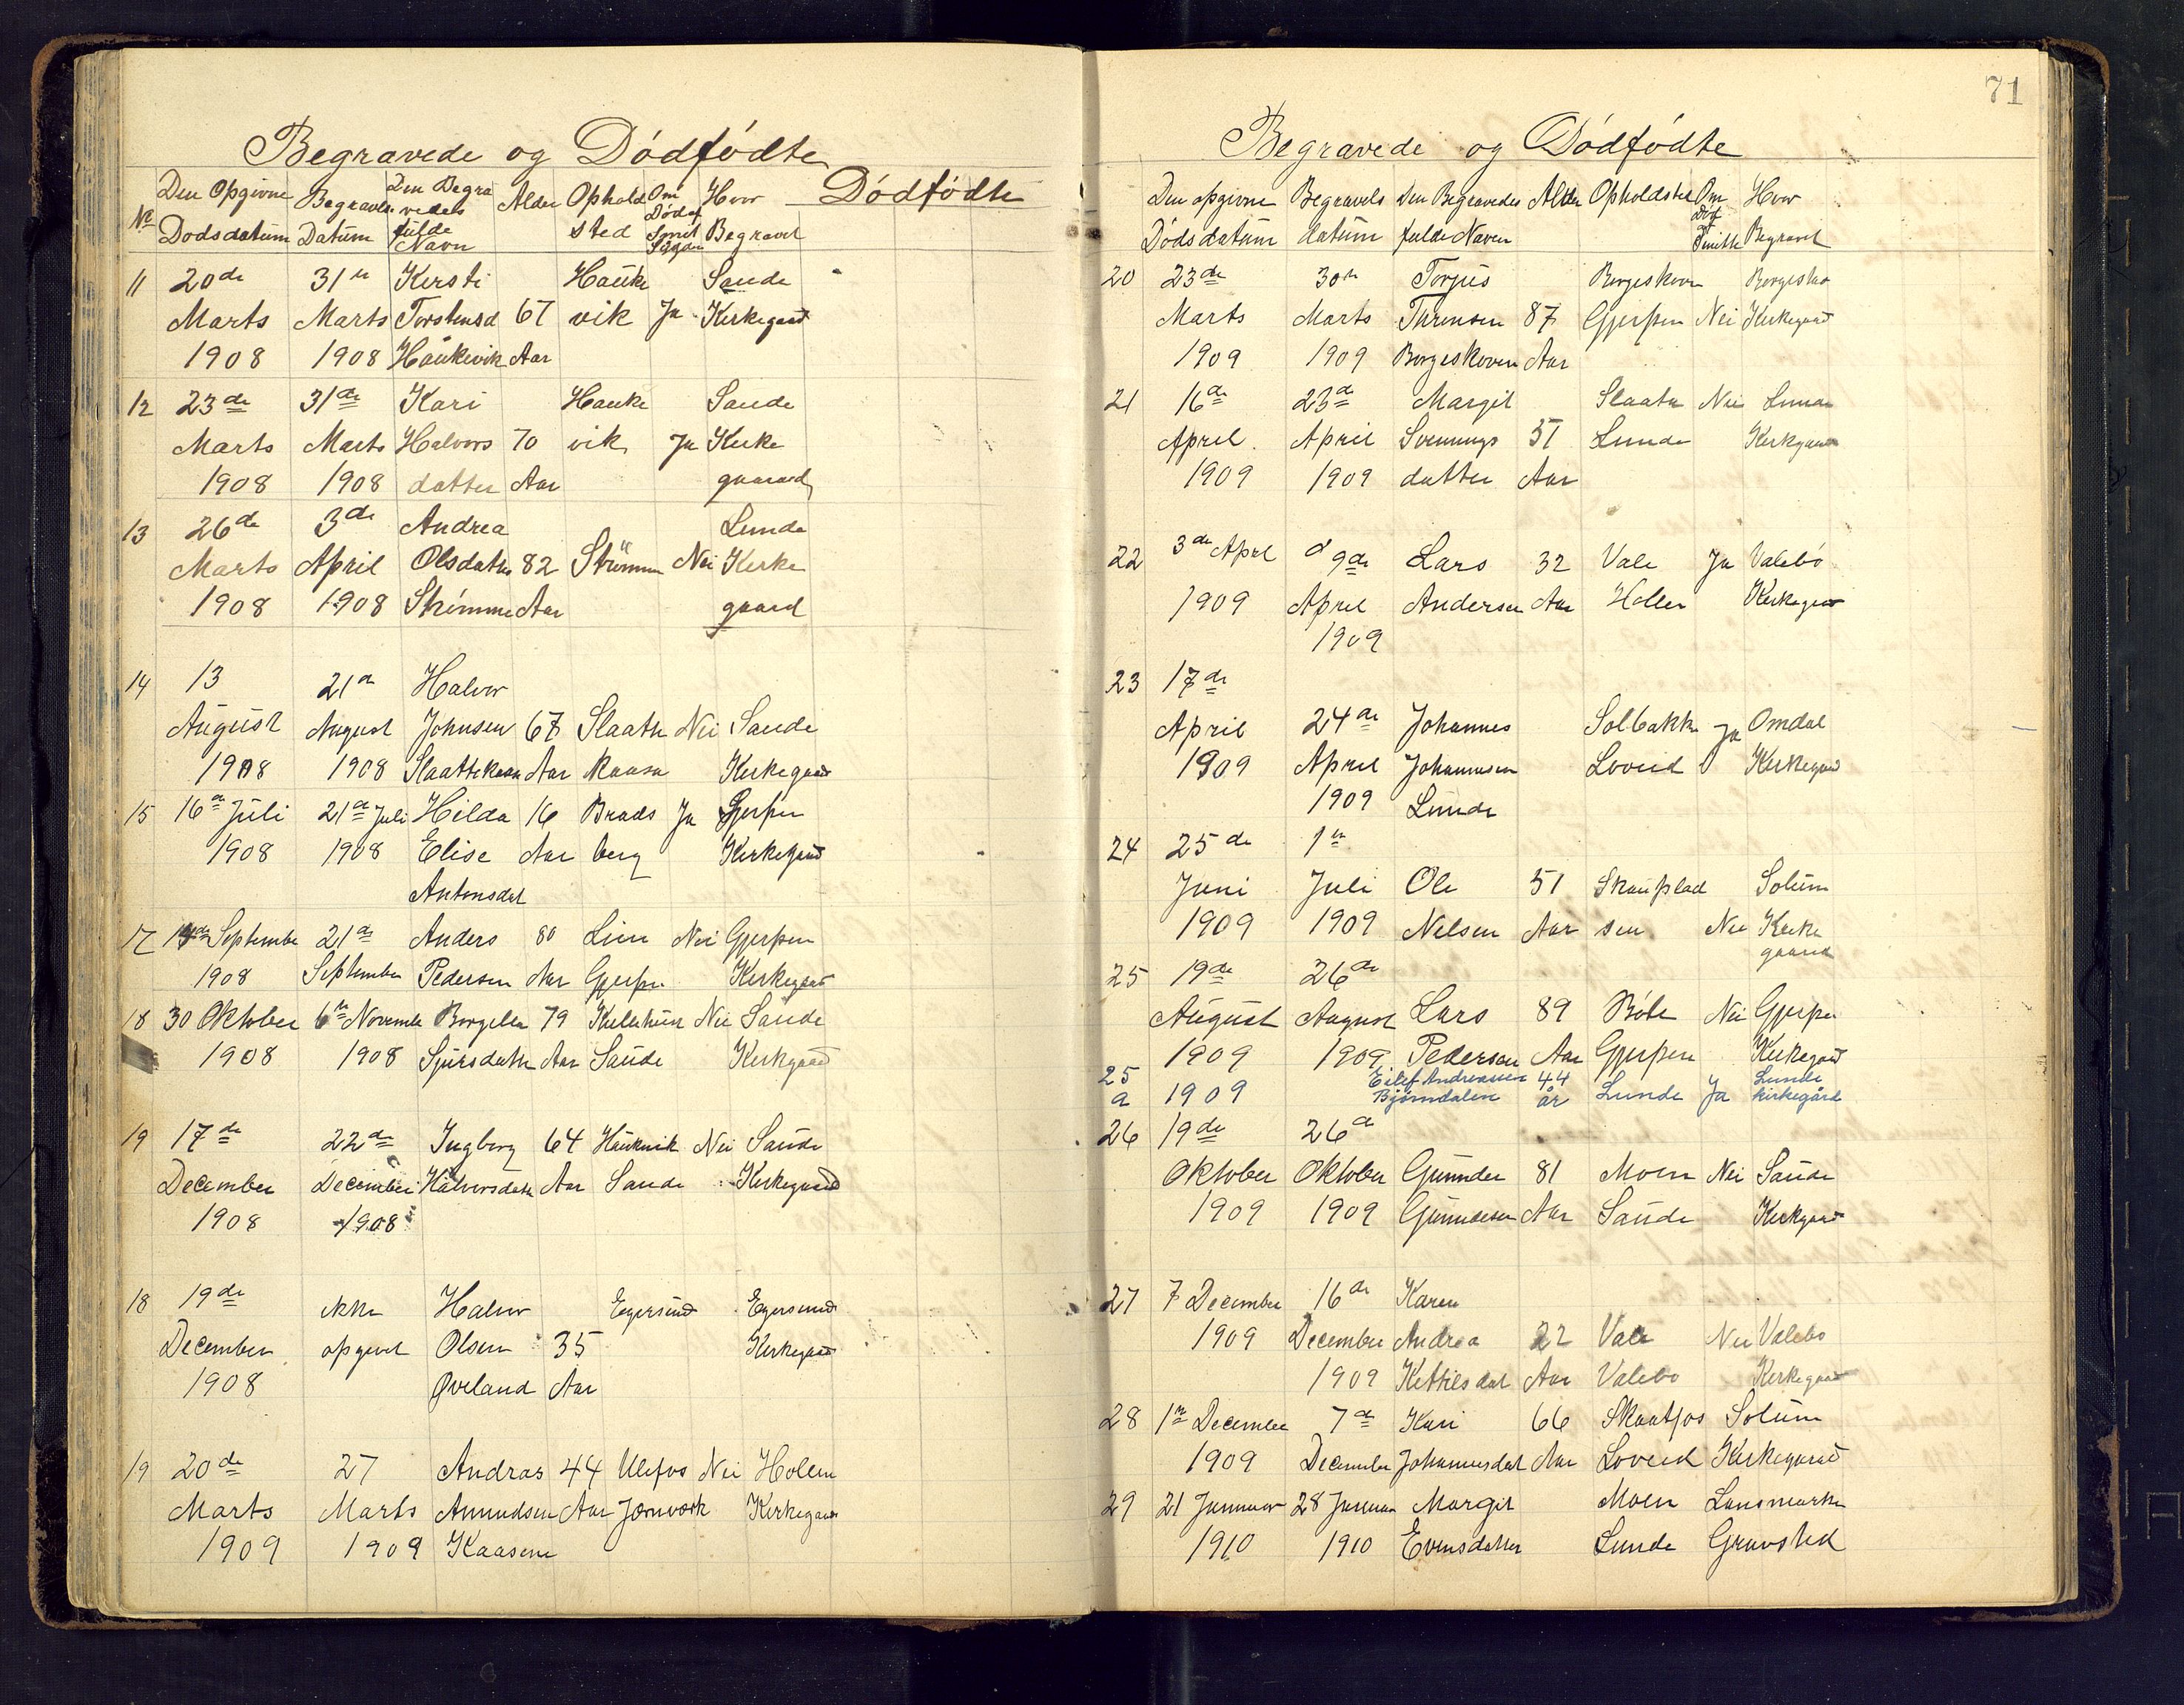 Begravede og Dødfødte
Den Opgivne Begravels Den Begra Alder Ophold Om Hvor Dødfødte
No Dodsdatum Datum vedes fulde Navn sted Død af Smit Sygdom Begravet
11 20de 31te Kersti Hauke Sande
Marts Marts Torstensd 67 vik Ja Kirkegaard
1908 1908 Haukevik Aar
12 23de 31de Kari Hauke Saude
Marts Marts Halvors 70 vik Ja Kirke
1908 1908 datter Aar gaarard
13 26de 3de Andrea Lunde
Marts April Olsdatter 82 Strømm Nei Kirke
1908 1908 Strömme Aar gaard
14 13 21de Halvor
August August Johnsen 67 Slaatte Nei Saude
1908 1908 Slaattekaasa Aar kaasa Kirkegaard
15 16de Juli 21de Juli Hilda 16 Brads Ja Gjerpen
1908 1908 Elise Aar berg Kirkegaard
Antonsdat
17 14de September 21de Anders 80 Lien Nei Gjerpen
1908 September Pedersen Aar Gjerpen Kirkegaard
18 30 Oktober 6te November Borgella 79 Nei Saude
1908 1908 Sjursdatter Aar Saude Kirkegaard
19 17de 22de Ingborg 64 Haukvik Nei Saude
December December Halvorsdatter Aar Saude Kirkegaard
1908 1908
18 19de ikke Halvor Egersund Egersund
December opgivet Olsen 35 Kirkegaard
1908 Øveland Aar
19 20de 27 Andras 44 Ulefos Nei Holla
Marts Marts Amundsen Aar Jernværk Kirkegaard
1909 1909 Kaasene
71
Begravede og Dødfødte
Den opgivne Begravels Den Begravedes Alder Opholdsted Om Hvor
Dødsdatum datum fulde Naven Død af Smitte Begravet
20 23de 30te Torjus Borgeskoven Borgestad
Marts Marts 87 Gjerpen Nei Kirkegaard
1909 1909 Borgeskoven Aar
21 16de 23de Margit Slaatta Nei Lunde
April April Svennungs 51 Lunde Kirkegaard
1909 1909 datter Aar
22 3de April d 9de Lars 32 Vale Ja Valebø
1909 April Andersen Aar Hollen Kirkegaard
1909
23 17de
April 24de Johannes Solbakken Ja Omdal
1909 April Johannesen Loveid Kirkegaard
1909 Lunde
24 25de 1te
Juni Juli Ole 51 Skauplad Solum
1909 1909 Nelsen Aar sen Nei Kirke
gaard
25 19de 26de
August August Lars 89 Bøle Nei Gjerpen
1909 1909 Pedersen Aar Gjerpen Kirkegaard
25 Eilef Andreassen 44 Lunde
a 1909 Bjørndalen år Lunde Ja kirkegård
26 19de 26de
Oktober Oktober Gunnder 81 Moen Nei Saude
1909 1909 Gunndesen Aar Saude Kirkegaard
27 7 December 16de Karen
1909 December Andrea 22 Vale Nei Valebo
1909 Kettilsdat Aar Valebo Kirkegaard
28 1te December 7de Kari 66 Skaatfos Solum
1909 December Johannesdat Aar Loveid Kirkegaard
29 21 Januar 28 Januar Margit Moen Landsmarken
1910 1910 Evensdatter Lunde Gravsted